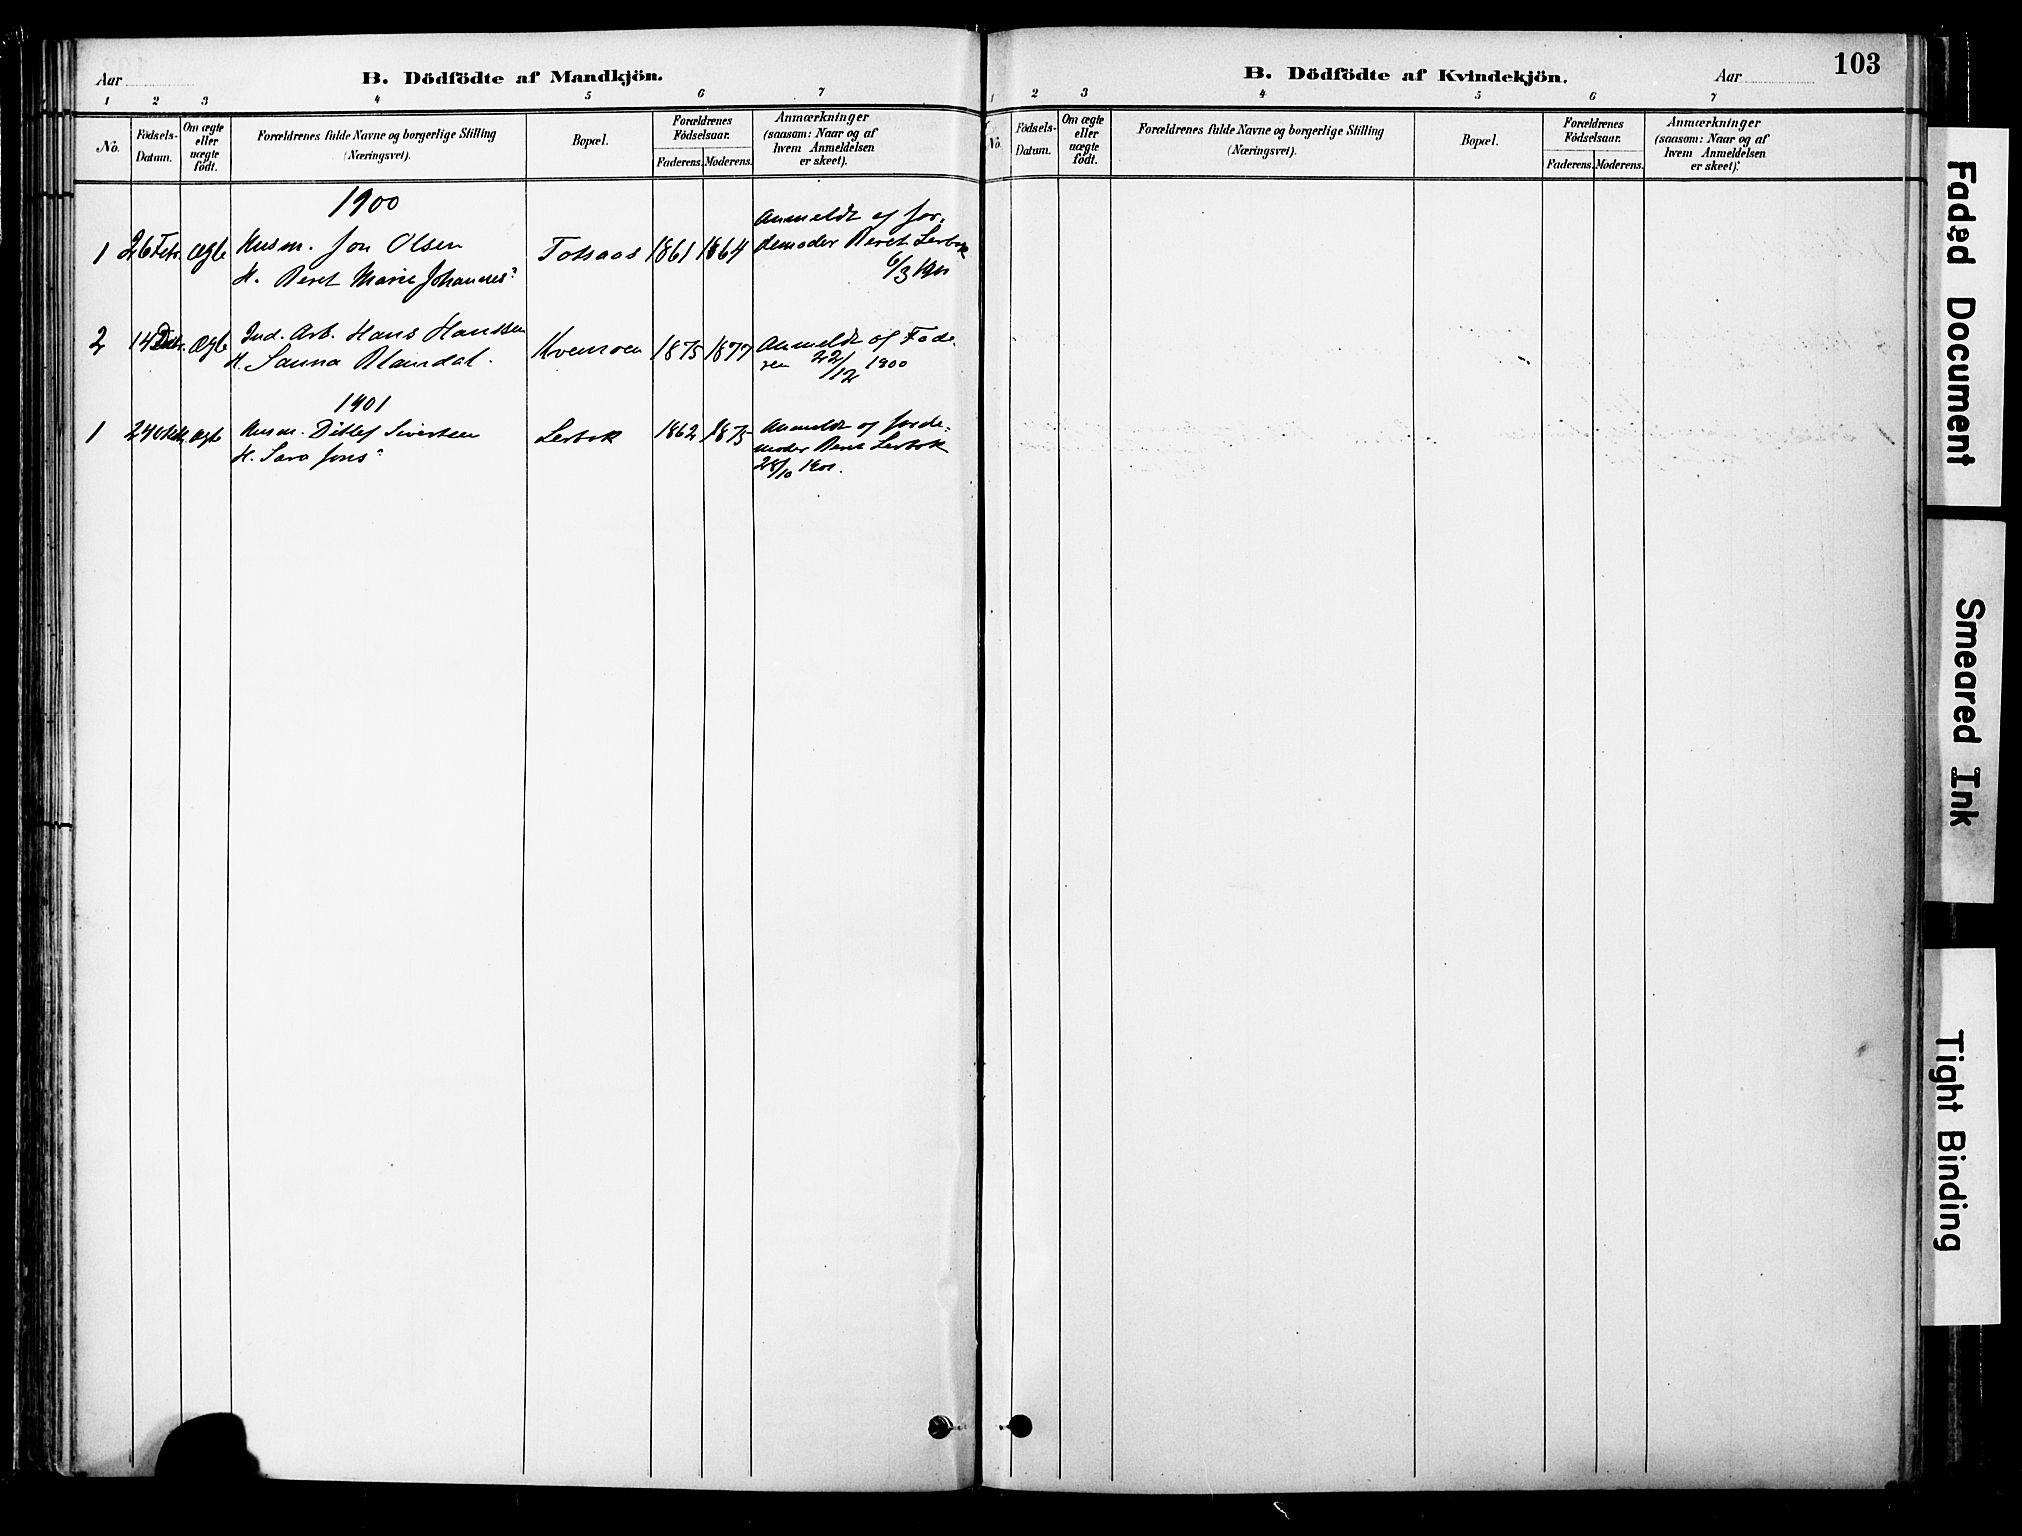 Aar
B. Dödfödte af Mandkjön.
1 2 3 4 5 6 7
No.
Födsels-Datum.
Om ægte eller uægte födt.
Forældrenes fulde Navne og borgerlige Stilling
(Næringsvei).
Bopæl.
Forældrenes Födselsaar.
Faderens. Moderens.
Anmærkninger
(saasom: Naar og af
hvem Anmeldelsen
er skeet).
1900
1 26 Febr. ægte Husm. Jon Olsen Totsaas 1861 1864 Anmeldt af Jor-
H. Beret Marie Johannes" demoder Beret Lerbak
6/3 1900
2 14 Decbr. ægte Ind. Arb. Hans Hanssen Kvemoen 1875 1877 Anmeldt af Fade-
H. Sanna Blaindal. ren 22/12 1900
1901
1 24 Oktb. ægte Husm. Ditlef Sivertsen Lerbak 1862 1875 Anmeldt af Jorde-
H. Sara Jons" moder Beret Lerbak
28/10 1901.
B. Dödfödte af Kvindekjön.
Aar
103
1 2 3 4 5 6 7
No.
Födsels-Datum.
Om ægte eller uægte födt.
Forældrenes fulde Navne og borgerlige Stilling
(Næringsvei).
Bopæl.
Forældrenes Födselsaar.
Faderens. Moderens.
Anmærkninger
(saasom: Naar og af
hvem Anmeldelsen
er skeet).
Faded Document
Smeared Ink
Tight Binding